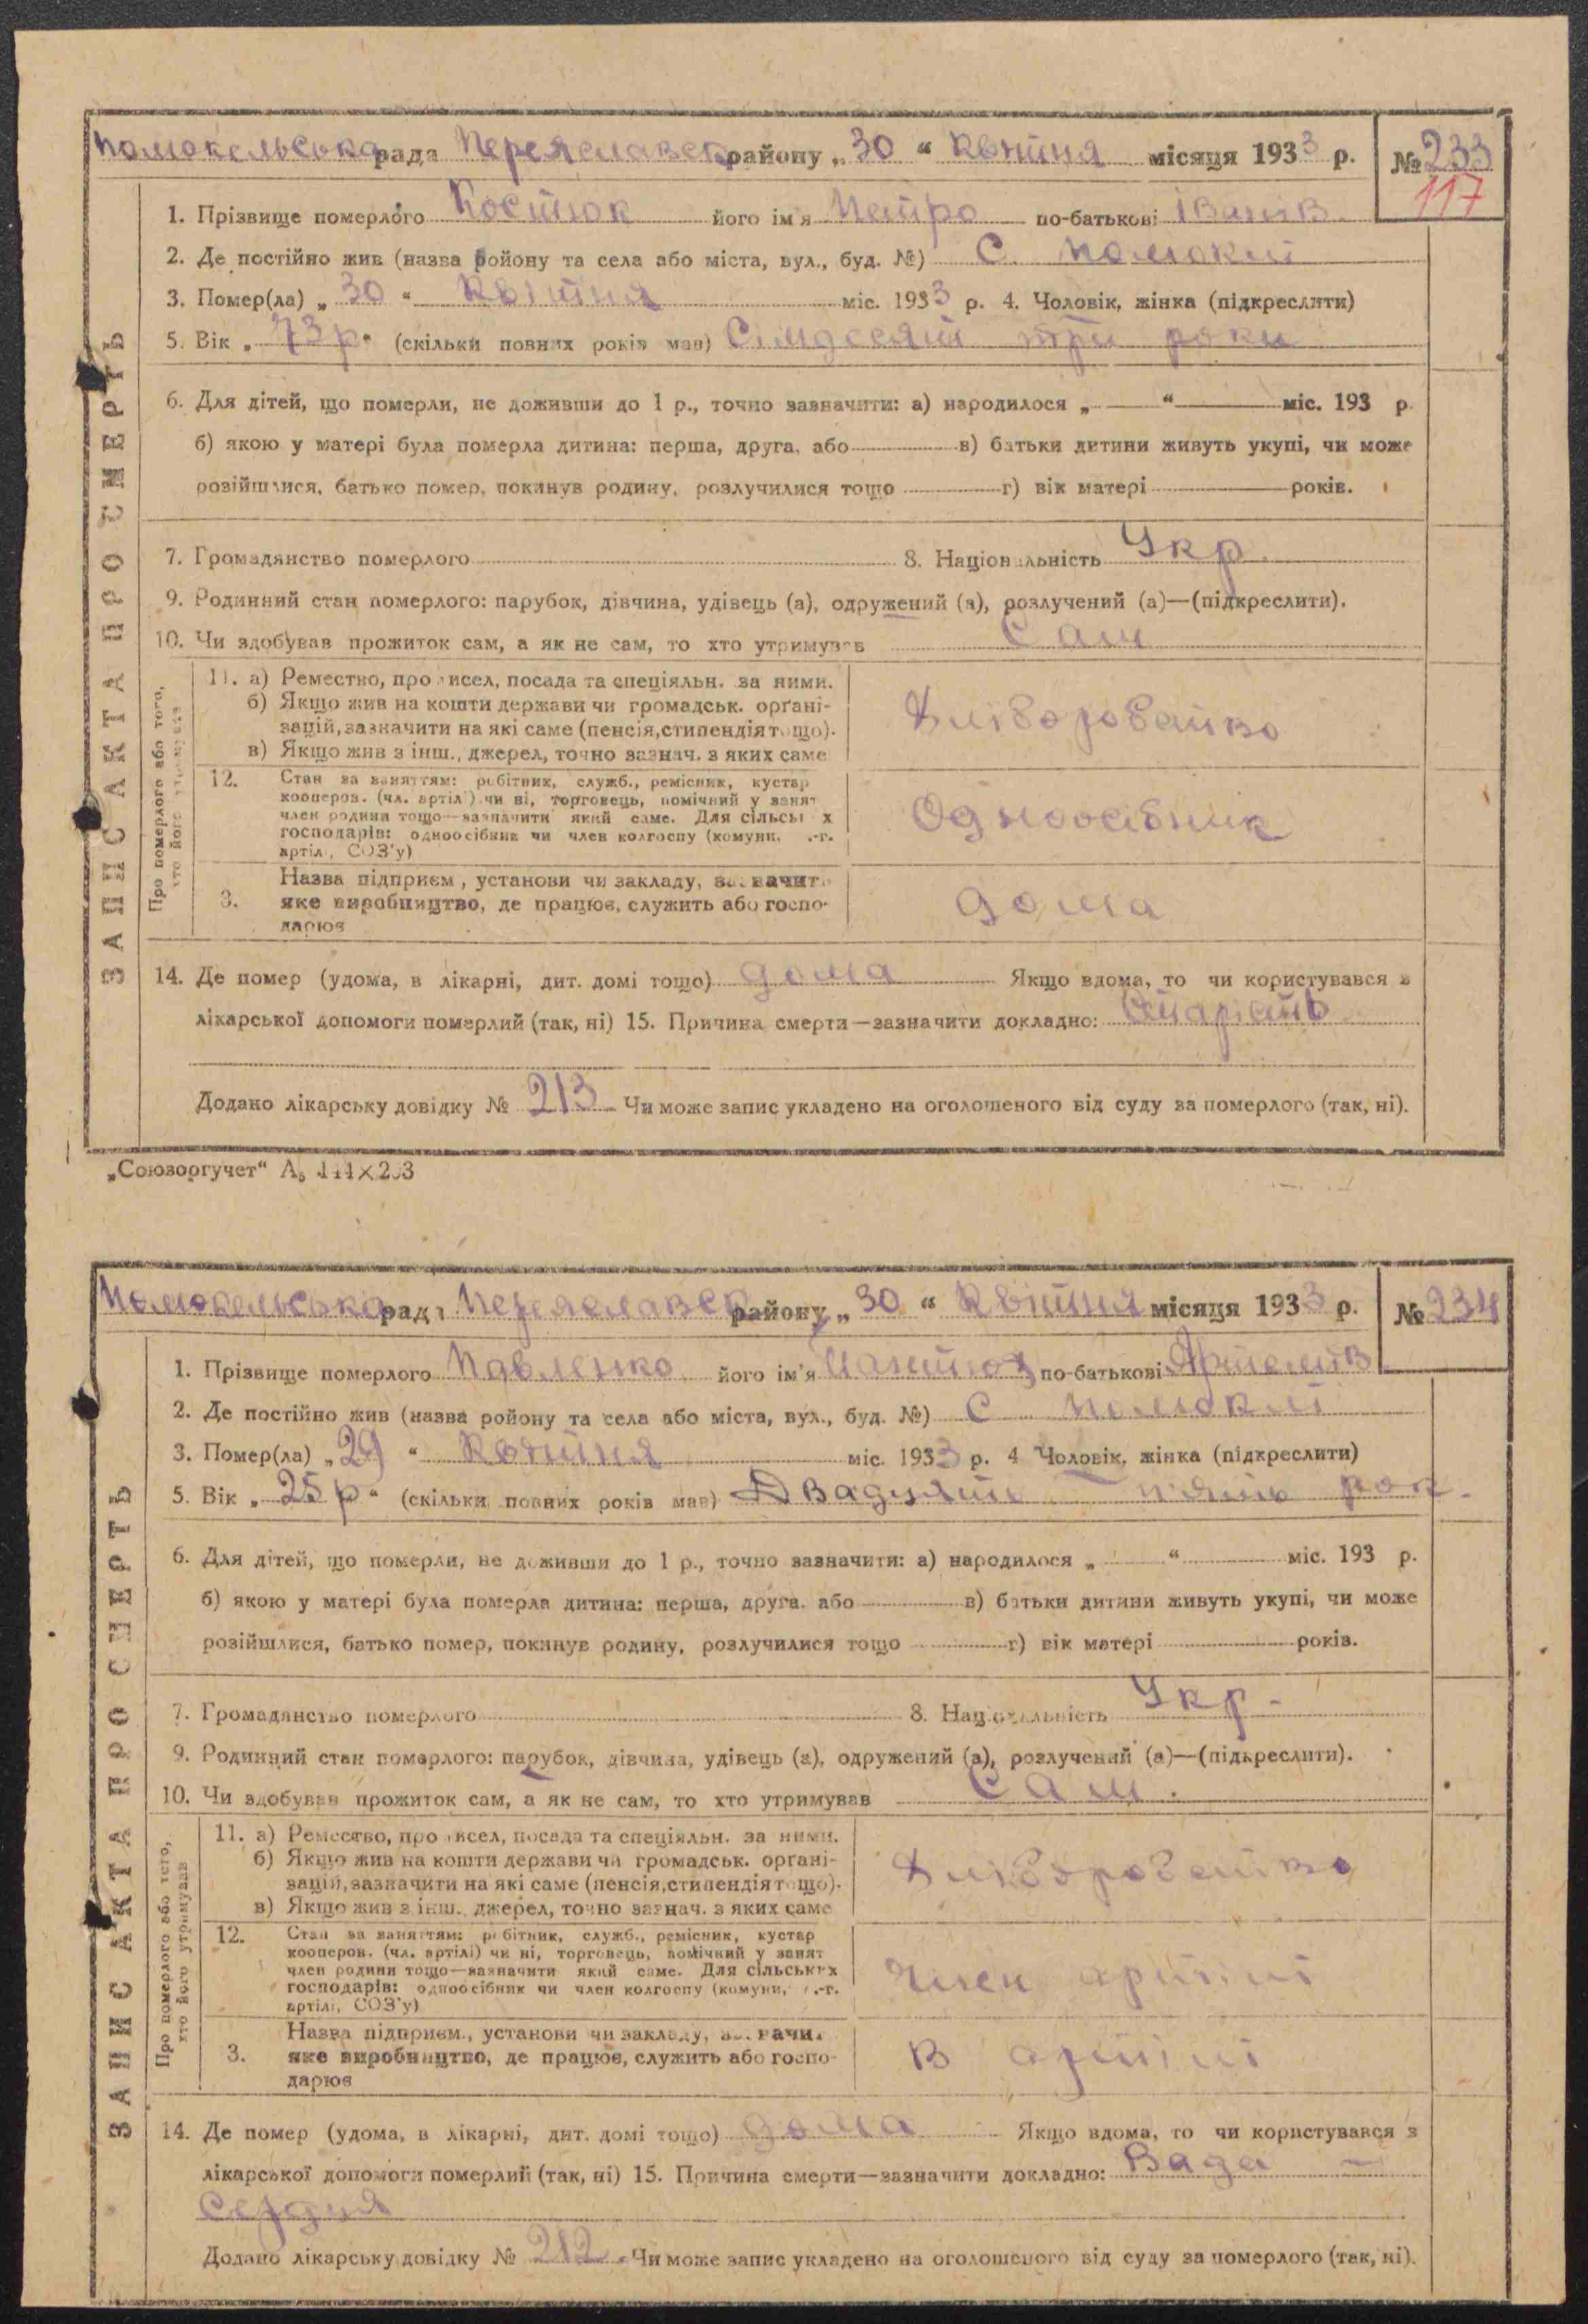 Помокельська рада Переяславськ району „30“ Квітня місяця 1933 р. № 233
117
1. Прізвище померлого Костюк його ім'я Петро по-батькові Іванів.
2. Де постійно жив (назва ройону та села або міста, вул., буд. №) С. Помокли
3. Помер(ла) „30“ Квітня міс. 1933 р. 4. Чоловік, жінка (підкреслити)
5. Вік „73р“ (скільки повних років мав) Сімдесят три роки
6. Для дітей, що померли, не доживши до 1 р., точно зазначити: а) народилося „ “ міс. 193 р.
б) якою у матері була померла дитина: перша, друга, або в) батьки дитини живуть укупі, чи може
розійшлися, батько помер, покинув родину, розлучилися тощо г) вік матері років.
7. Громадянство померлого 8. Національність Укр.
9. Родинний стан померлого: парубок, дівчина, удівець (а), одружений (а), розлучений (а)—(підкреслити).
10. Чи здобував прожиток сам, а як не сам, то хто утримував Сам
11. а) Ремество, промисел, посада та спеціяльн. за ними.
б) Якщо жив на кошти держави чи громадськ. орґані-
зацій, зазначити на які саме (пенсія, стипендія тощо).
в) Якщо жив з інш., джерел, точно зазнач. з яких саме
Хліборобство
12. Стан за заняттям: робітник, служб., ремісник, кустар
кооперов. (чл. артілі) чи ні, торговець, помічний у занят
член родини тощо—зазначити який саме. Для сільськ х
господарів: одноосібник чи член колгоспу (комуни, .-г.
артілі, СОЗ'у)
Одноосібник
3. Назва підприєм, установи чи закладу, зазначить
яке виробництво, де працює, служить або госпо-
дарює
дома
14. Де помер (удома, в лікарні, дит. домі тощо) дома Якщо вдома, то чи користувався з
лікарської допомоги померлий (так, ні) 15. Причина смерти—зазначити докладно: Старість
Додано лікарську довідку № 213 Чи може запис укладено на оголошеного від суду за померлого (так, ні).
ЗАПИС АКТА ПРО СМЕРТЬ
Про померлого або того,
хто його утримував
„Союзоргучет“
Помокельська рада Переяславськ району „30“ Квітня місяця 1933 р. № 234
1. Прізвище померлого Павленко його ім'я по-батькові Артемів
2. Де постійно жив (назва ройону та села або міста, вул., буд. №) С Помокли
3. Помер(ла) „29“ Квітня міс. 1933 р. 4 Чоловік, жінка (підкреслити)
5. Вік „25р“ (скільки повних років мав) Двадцять п'ять рок.
6. Для дітей, що померли, не доживши до 1 р., точно зазначити: а) народилося „ “ міс. 193 р.
б) якою у матері була померла дитина: перша, друга, або в) батьки дитини живуть укупі, чи може
розійшлися, батько помер, покинув родину, розлучилися тощо г) вік матері років.
7. Громадянство померлого 8. Національність Укр.
9. Родинний стан померлого: парубок, дівчина, удівець (а), одружений (а), розлучений (а)—(підкреслити).
10. Чи здобував прожиток сам, а як не сам, то хто утримував Сам.
11. а) Ремество, промисел, посада та спеціяльн. за ними.
б) Якщо жив на кошти держави чи громадськ. орґані-
зацій, зазначити на які саме (пенсія, стипендія тощо).
в) Якщо жив з інш., джерел, точно зазнач. з яких саме
Хліборобство
12. Стан за заняттям: робітник, служб., ремісник, кустар
кооперов. (чл. артілі) чи ні, торговець, помічний у занят
член родини тощо—зазначити який саме. Для сільських
господарів: одноосібник чи член колгоспу (комуни, .-г.
артілі, СОЗ'у)
Член артілі
3. Назва підприєм., установи чи закладу, зазначи
яке виробництво, де працює, служить або госпо-
дарює
в артілі
14. Де помер (удома, в лікарні, дит. домі тощо) дома Якщо вдома, то чи користувався з
лікарської допомоги померлий (так, ні) 15. Причина смерти—зазначити докладно: Вада
Серця
Додано лікарську довідку № 212. Чи може запис укладено на оголошеного від суду за померлого (так, ні).
ЗАПИС АКТА ПРО СМЕРТЬ
Про померлого або того,
хто його утримував